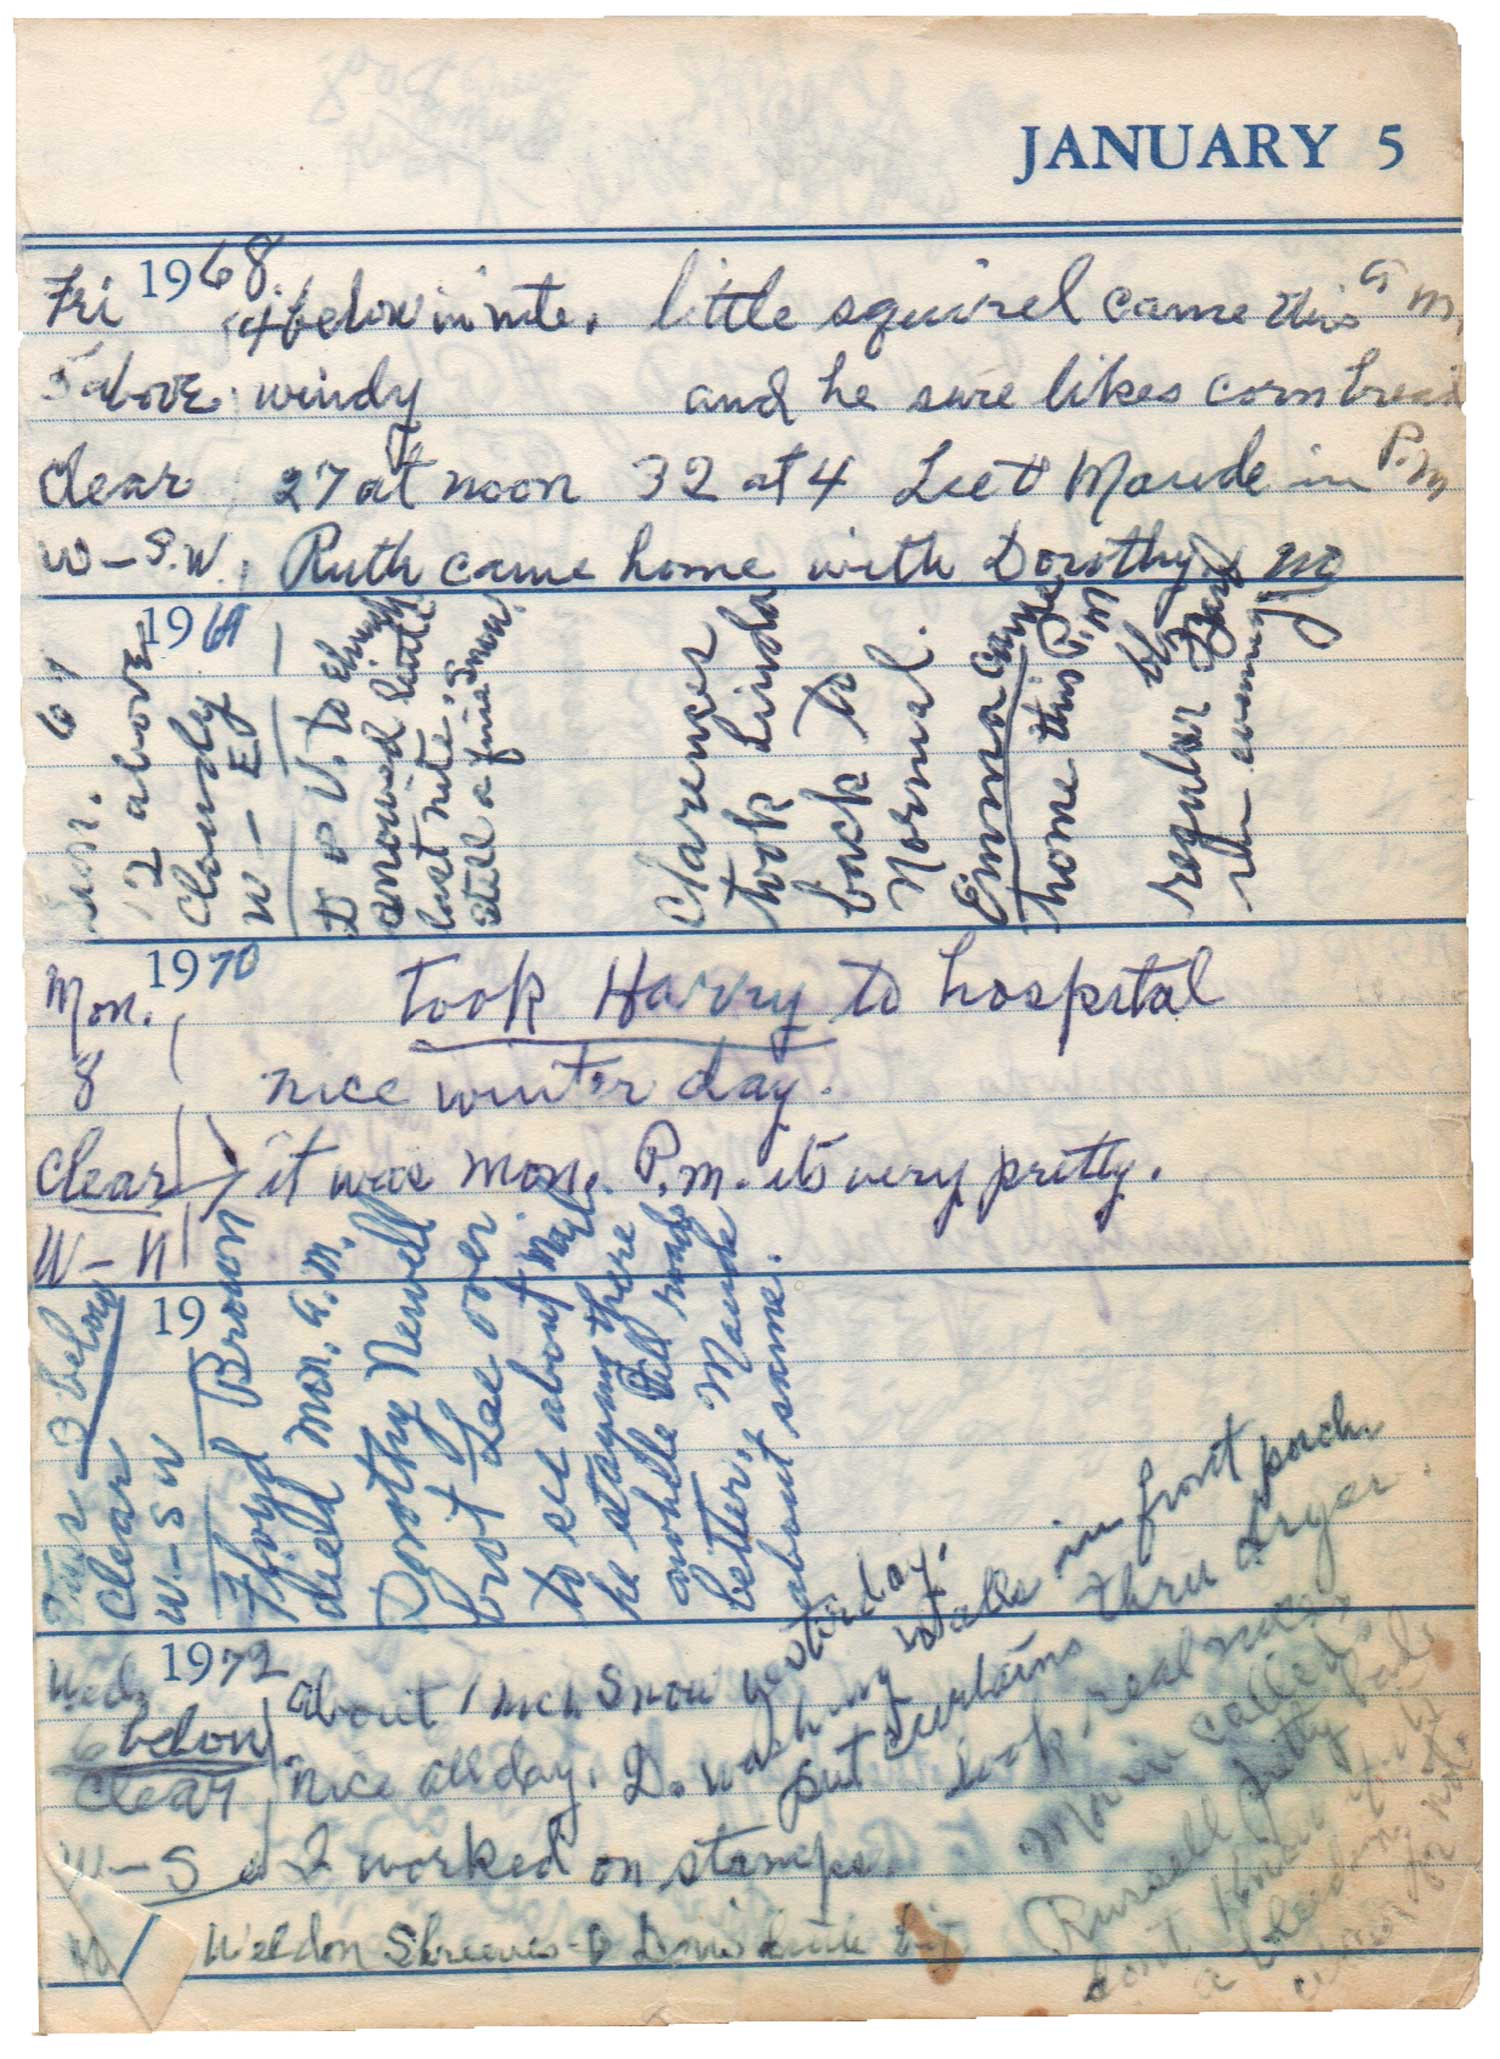 JANUARY 5
1968.
Fri 4 below in nite. little squirrel came this a m.
5 above windy and he sure likes corn bread
clear 27 at noon 32 at 4 Lee & Maude in P.m
W-S.W. Ruth came home with Dorothy
1969
Sun.
12 above
Cloudy
W-E
to church
snowed little
last nite,
still a fine snow.
Clarences
took Linda
back to
Normal.
Emma came
home this P.M
regular
evening
1970
Mon. took Harry to hospital
8 nice winter day.
Clear it was Mon. P.m. its very pretty.
W-N
19
Tues 3 below
Clear
W-SW
Floyd Brown
died Mon. a.m.
Dorothy Newell
brot Lee over
to see about Maude
he staying there
awhile
better. Maude
about same.
1972
Wed. about 1 inch Snow yesterday.
6 below
clear nice all day. D. washing walls in front porch.
put curtains thru dryer
look real nice
W-S I worked on stamps.
called
Russell pretty bad
dont know if its
a bleeding
or not.
Weldon Shreeves-